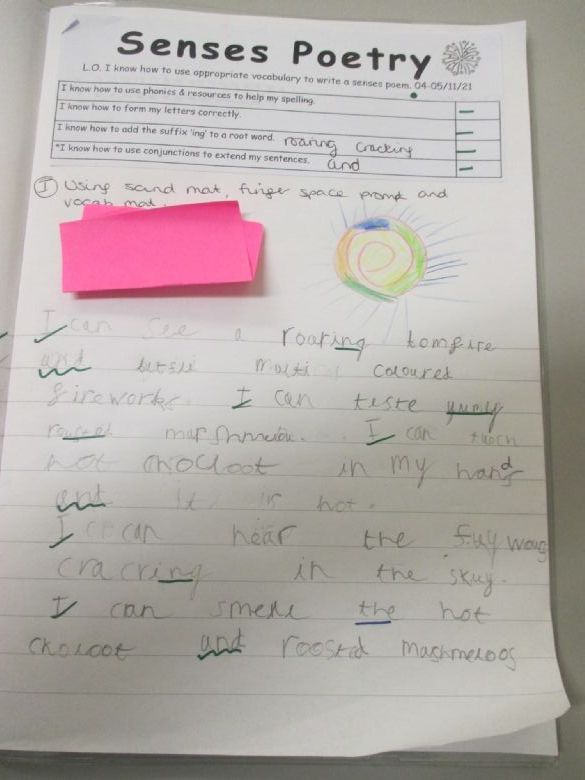 Senses Poetry
L.O. I know how to use appropriate vocabulary to write a senses poem. 04-05/11/21
I know how to use phonics & resources to help my spelling.
I know how to form my letters correctly.
I know how to add the suffix 'ing' to a root word. roaring cracking
*I know how to use conjunctions to extend my sentences. and
I Using sand mat, finger space prompt and
vocab mat.
I can see a roaring bomfire
and multi coloured
fireworks. I can teste yumy
I can
hot choloot in my hand
and it is hot.
I can hear the
cracring in the skuy.
I can smell the hot
choloot and roosted mashmeloos